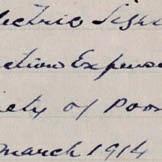 ectric Light
ction Expense
iety of Poor
March 1914